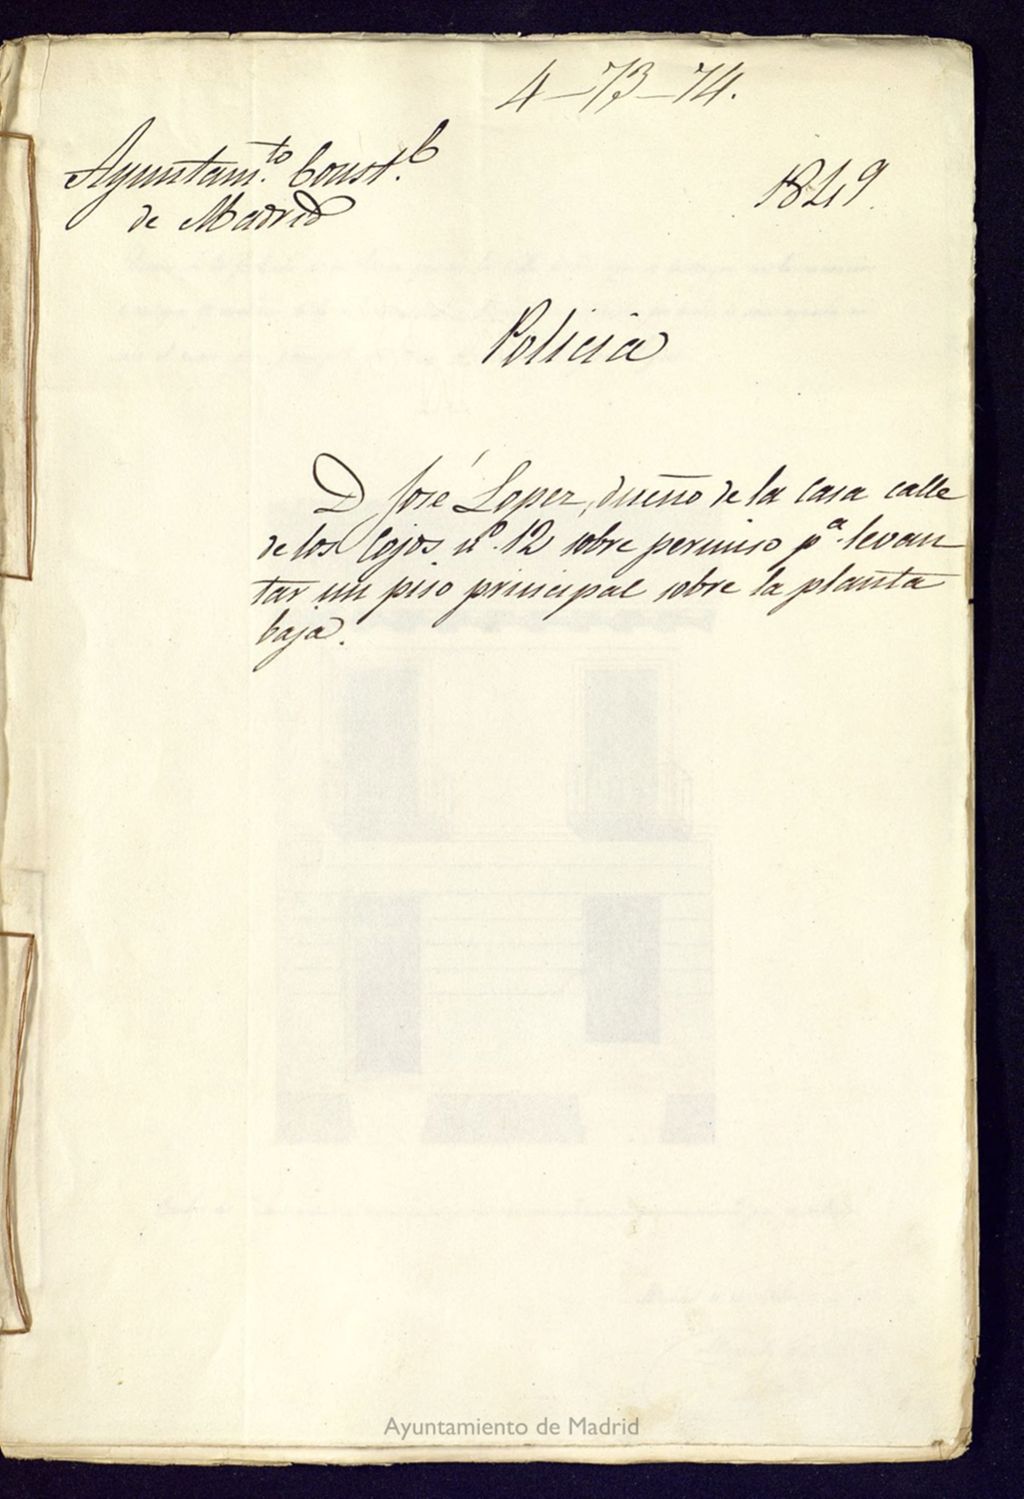 4-73-74.
Ayuntam.to Const.l
de Madrid
1849.
Policia
D José Lopez, dueño de la casa calle
de los Cojos n.o 12 sobre permiso p.a levan
tar un piso principal sobre la planta
baja.
Ayuntamiento de Madrid